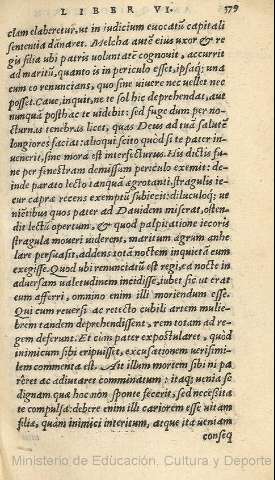 LIBER VI. 579
clam elaberetur, ut in iudicium euocatū capitali
sententia dānaret. Melcha autē eius uxor & re
gis filia ubi patris uoluntatē cognouit, accurrit
ad maritū, quanto is in periculo esset, ipsaq; unà
cum eo renuncians, quo sine uiuere nec uellet nec
posset. Caue, inquit, ne te sol hic deprehendat, aut
nunquā posthac te uidebit: sed fuge dum per no-
cturnas tenebras licet, quas Deus ad tuā salutē
longiores faciat: alioqui scito quòd si te pater in-
uenerit, sine mora est interfecturus. His dictis fu-
ne per fenestram demissum periculo eximit: de-
inde parato lecto tanquā ægrotanti, stragulis ie-
cur capræ recens exemptū subiecit: diluculoq; ut
niētibus quos pater ad Dauidem miserat, osten-
dit lectū opertum, & quod palpitatione iecoris
stragula moueri uiderent, maritum ægrum anhe
lare persuasit, addens totā noctem inquietā eum
exegisse. Quod ubi renunciatū est regi, ea nocte in
aduersam ualetudinem incidisse, iubet sic ut erat
eum afferri, omnino enim illi moriendum esse.
Qui cum reuersi ac retecto cubili artem mulie-
brem tandem deprehendissent, rem totam ad re-
gem deferunt. Et cùm pater expostularet, quod
inimicum sibi eripuisset, excusationem uerisimi-
lem commenta est. Ait illum mortem sibi ni pa
rêret ac adiutaret comminatum: itaq; uenia se
dignam quæ hoc non sponte fecerit, sed necessita
te compulsa: debere enim illi cariorem esse uitam
filiæ, quàm inimici interitum, atque ita ueniam
conseq
Ministerio de Educación, Cultura y Deporte